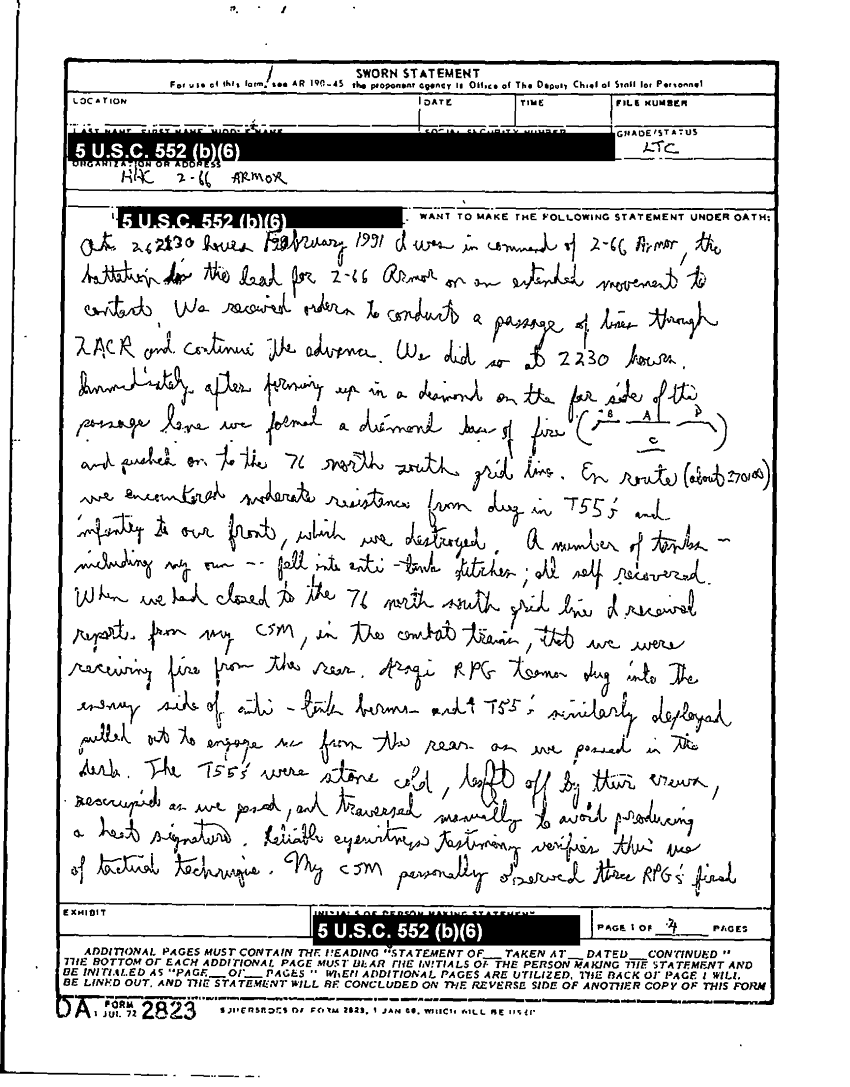 SWORN STATEMENT
For use of this form, see AR 190-45 the proponent agency is Office of The Deputy Chief of Staff for Personnel
LOCATION DATE TIME FILE NUMBER
LAST NAME, FIRST NAME, MIDDLE NAME SOCIAL SECURITY NUMBER GRADE/STATUS
5 U.S.C. 552 (b)(6) LTC
ORGANIZATION OR ADDRESS
HHC 2-66 ARMOR
I, 5 U.S.C. 552 (b)(6) , WANT TO MAKE THE FOLLOWING STATEMENT UNDER OATH:
At 262130 hours February 1991 I was in command of 2-66 Armor, the
battalion in the lead for 2-66 Armor on an extended movement to
contact. We received orders to conduct a passage of lines through
2ACR and continue the advance. We did so at 2230 hours.
Immediately after forming up in a diamond on the far side of the
passage lane we formed a diamond base of fire ( B A D
C )
and pushed on to the 76 north south grid line. En route (about 270100)
we encountered moderate resistance from dug in T55's and
infantry to our front, which we destroyed. A number of tanks -
including my own -- fell into anti-tank ditches; all self recovered.
When we had closed to the 76 north south grid line I received
reports from my CSM, in the combat trains, that we were
receiving fire from the rear. Iraqi RPG teams dug into the
enemy side of anti-tank berms and T55's similarly deployed
pulled out to engage us from the rear as we passed in the
dark. The T55's were stone cold, left off by their crews,
reoccupied as we passed, and traversed manually to avoid producing
a heat signature. Reliable eyewitness testimony verifies this use
of tactical technique. My CSM personally observed three RPG's fired
EXHIBIT INITIALS OF PERSON MAKING STATEMENT
5 U.S.C. 552 (b)(6) PAGE 1 OF 4 PAGES
ADDITIONAL PAGES MUST CONTAIN THE HEADING "STATEMENT OF___ TAKEN AT___ DATED___ CONTINUED"
THE BOTTOM OF EACH ADDITIONAL PAGE MUST BEAR THE INITIALS OF THE PERSON MAKING THE STATEMENT AND
BE INITIALED AS "PAGE___OF___PAGES" WHEN ADDITIONAL PAGES ARE UTILIZED, THE BACK OF PAGE 1 WILL
BE LINED OUT, AND THE STATEMENT WILL BE CONCLUDED ON THE REVERSE SIDE OF ANOTHER COPY OF THIS FORM
DA FORM 1 JUL 72 2823 SUPERSEDES DA FORM 2823, 1 JAN 68, WHICH WILL BE USED